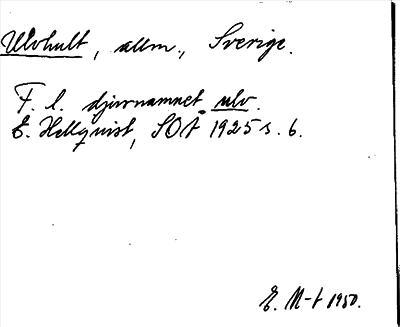 Ulvhult, allm., Sverige.
F. l. djurnamnet ulv.
E. Hellquist, SOÅ 1925 s. 6.
E. M-t 1950.